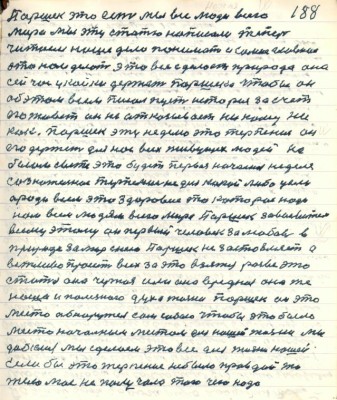 188
Паршек это есть мы все люди всего
мира мы эту статью написали теперь
читаем наше дело понимать и самое главное
это нам делать это все сделает природа она
сейчас у какой держит Паршека чтобы он
об этом всем писал пусть история за счет
его живет он не отказывает никому ни
кому. Паршек эту неделю это терпение он
его держит для нас всех живущих людей на
белом свете это будет первая начальная неделя
сознательное терпение не для какой либо цели
а ради всем это здоровье это которое надо
нам всем людям всего мира Паршек завоевывает
всему этому он первый человек за любовь в
природе за мир сам Паршек не заставляет а
вежливо просит всех за это взяться разве это
стоит она чужая или она вредная она же
наша и полезная духа жизни Паршек он это
место сам собою чтобы это было
место начальным местом для нашей жизни мы
мы сделаем это все для жизни нашей
Если бы это терпение не было правдой то
тело мое не получало того чего надо